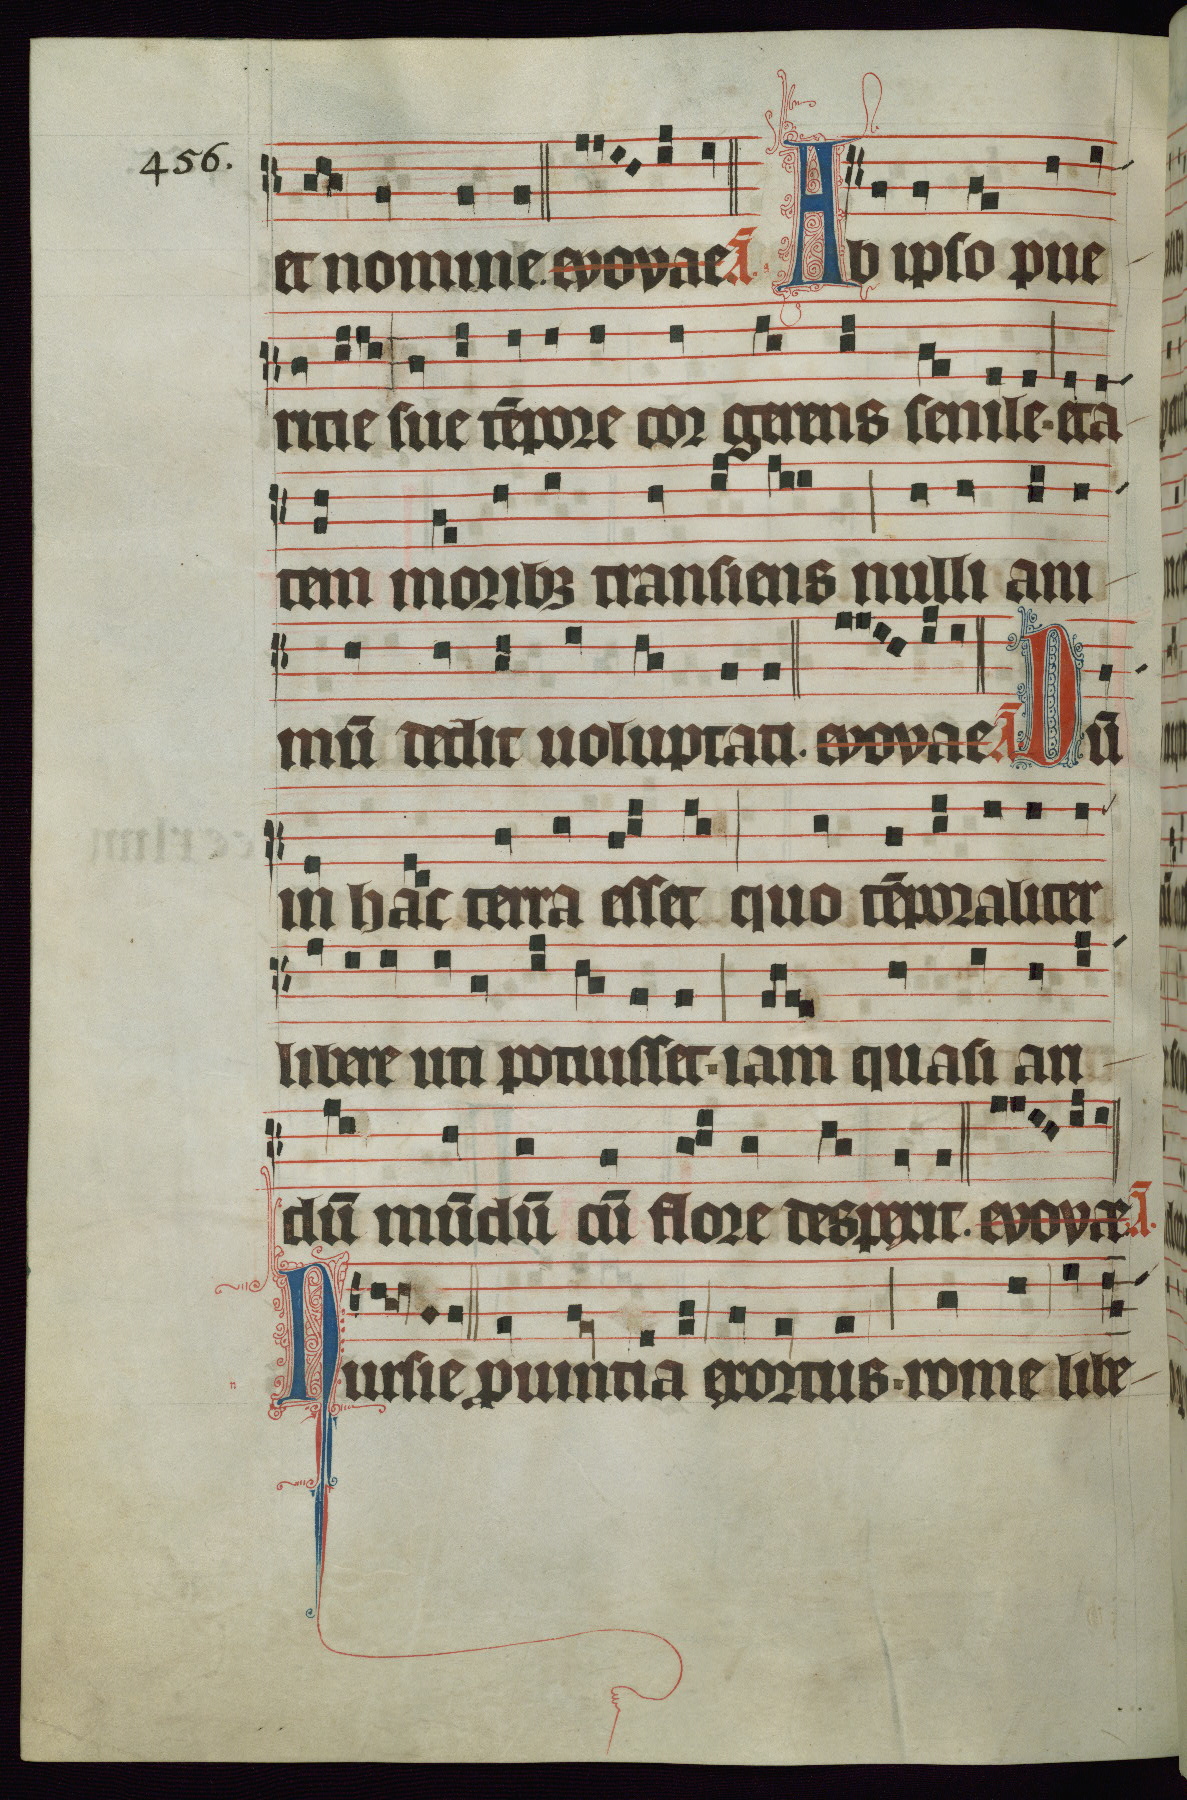 456.
et nomine. evovae A͞. Ab ipso pue
ritie sue te͞pore cor gerens senile·eta
tem moribꝫ transiens nulli ani
mu͞ dedit uoluptati. evovae A͞ Du͞
in hac terra esset quo te͞poraliter
libere uti potuisset·iam quasi ari
du͞ mu͞du͞ cu͞ flore despexit. evovae A͞.
Nursie ꝓuintia exortus·rome libe